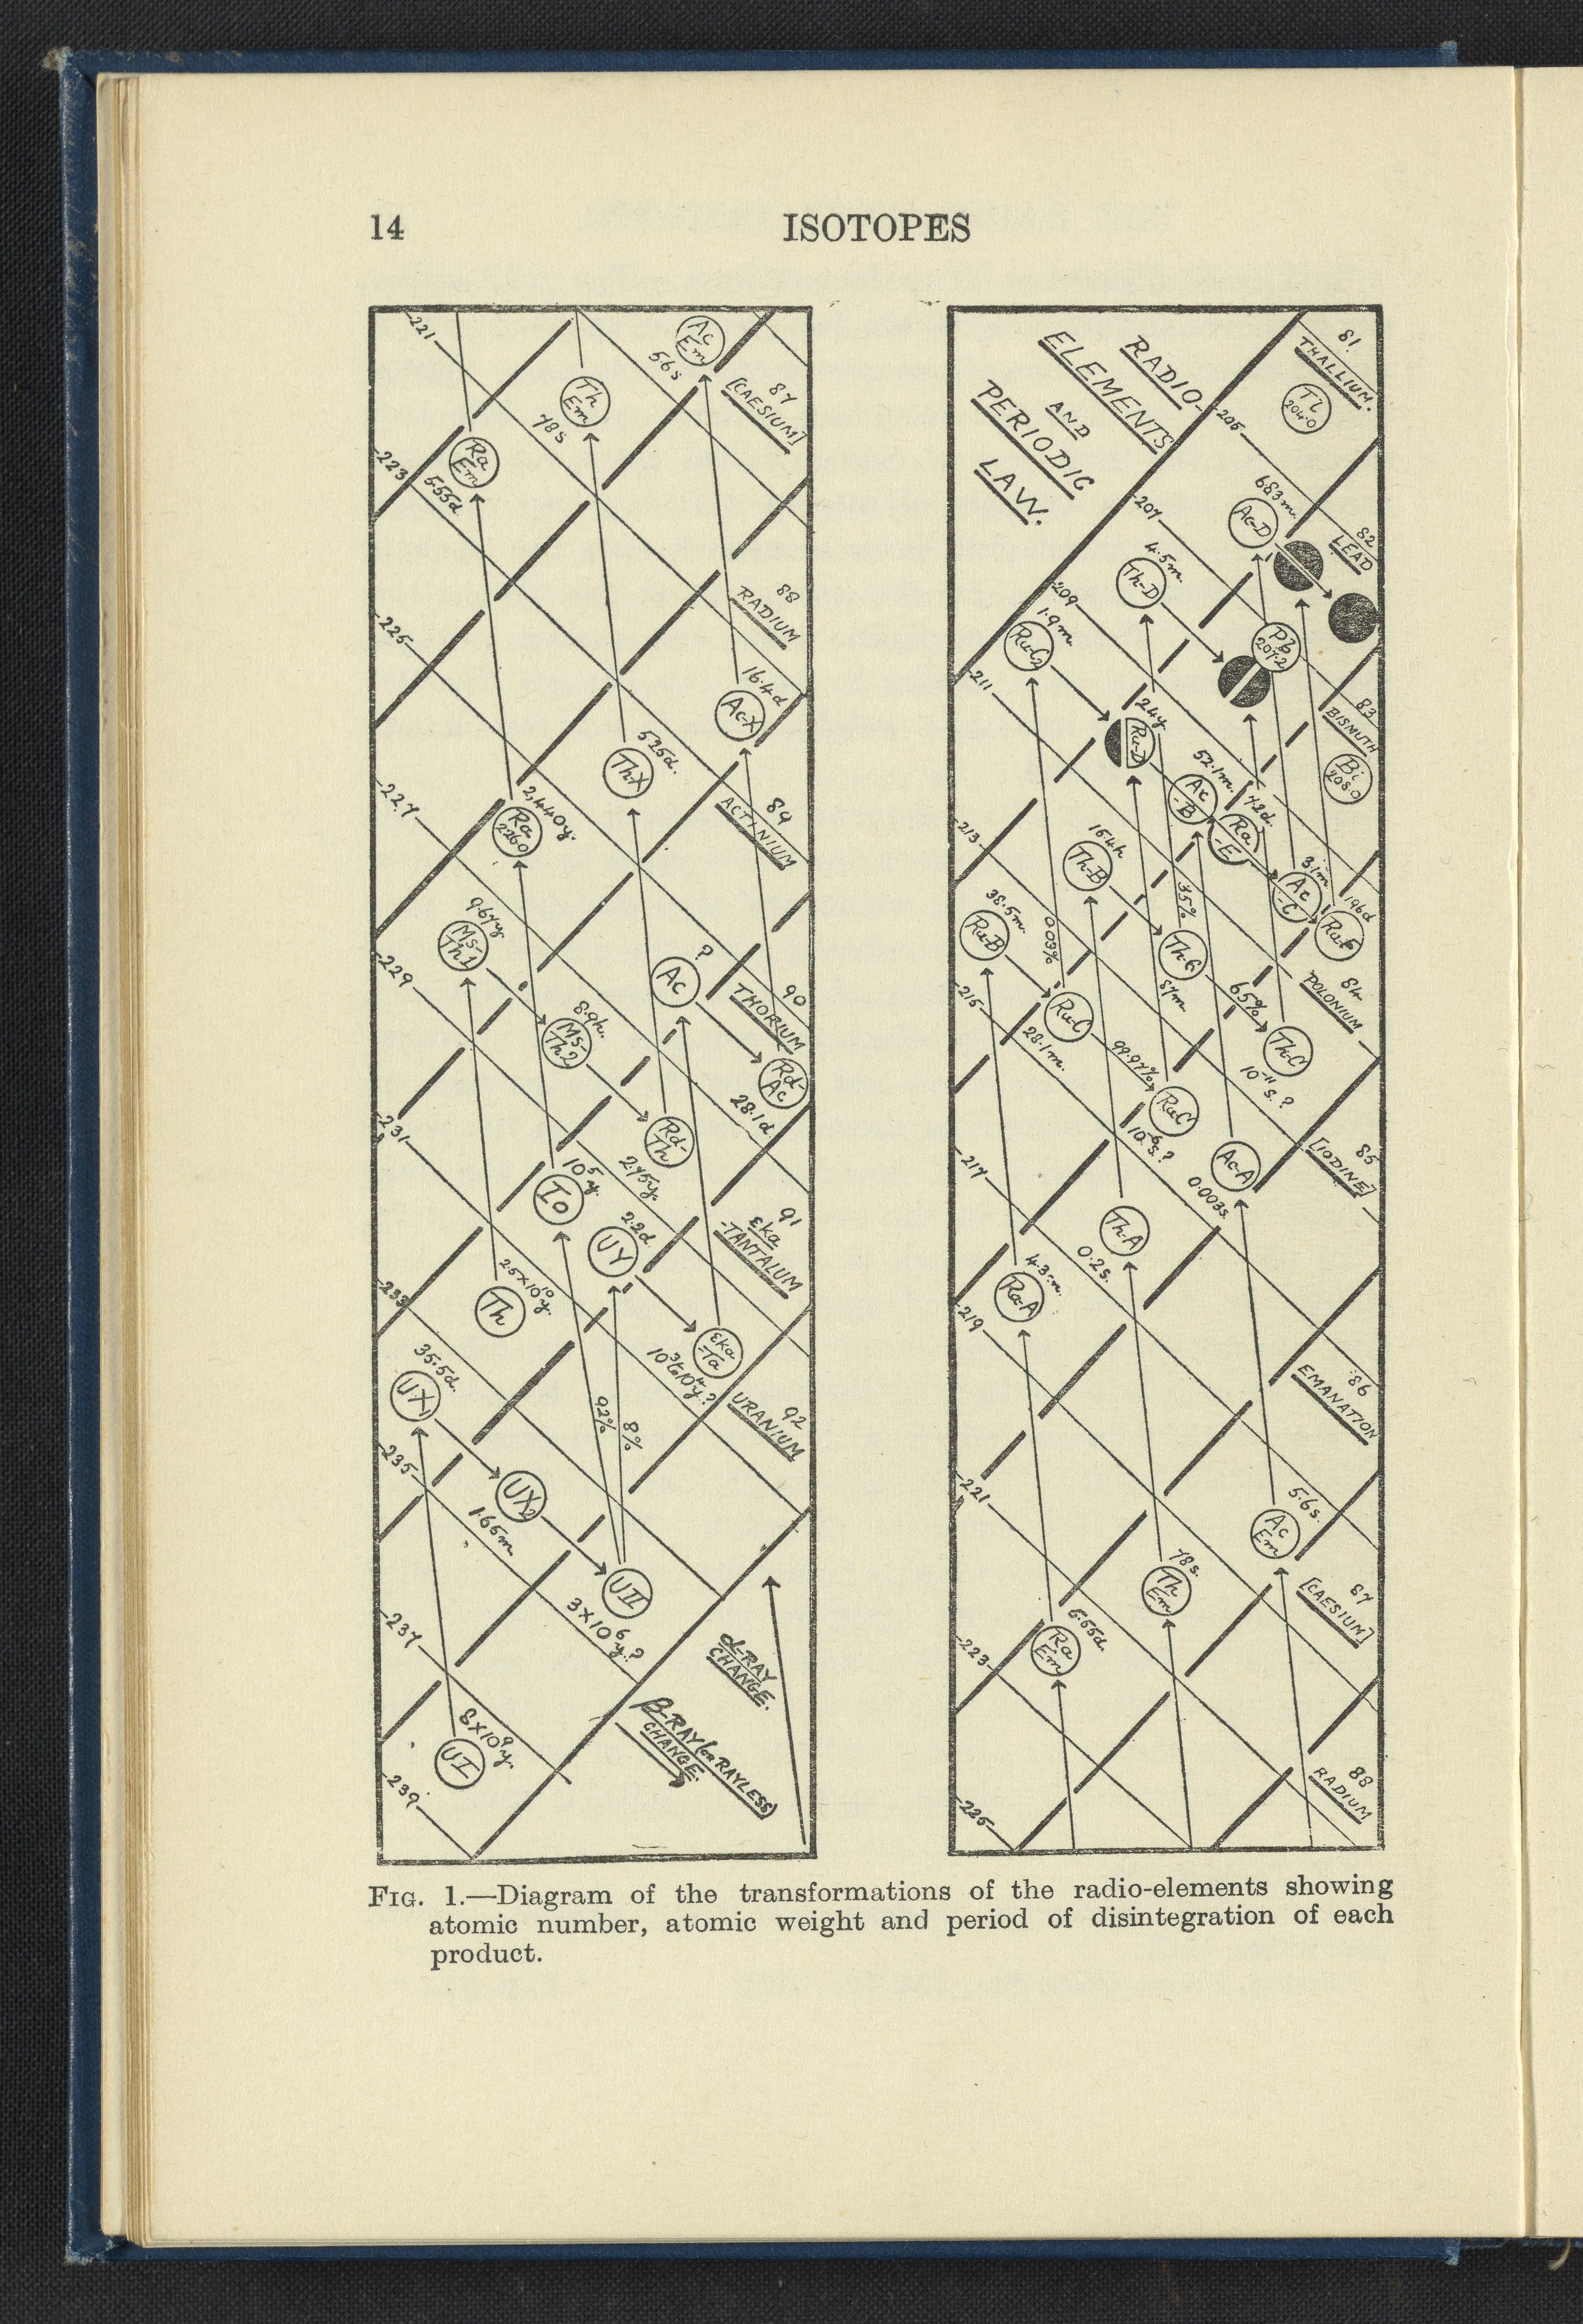 14
ISOTOPES
221
Ac
Em
56s
87
[CAESIUM]
Th
Em
78s
Ra
Em
5.55d.
223
88
RADIUM
225
16.4d
Ac-X
525d.
ThX
89
ACTINIUM
227
2,440y.
Ra
226.0
9.67y
Ms-
Th1
?
Ac
90
THORIUM
229
8.9h.
Ms-
Th2
Rd-
Ac
28.1d
231
Rd-
Th
2.75y.
10⁵y.
Io
91
εka
-TANTALUM
2.2d.
UY
233
2.5×10¹⁰y.
Th
εka
-Ta
10³to10⁴y.?
35.5d.
UX₁
92
URANIUM
92%
8%
235
UX₂
1.65m.
UII
3×10⁶y.?
237
α-RAY
CHANGE.
β-RAY (or RAYLESS)
CHANGE.
8×10⁹y.
UI
239
RADIO-
ELEMENTS
AND
PERIODIC
LAW.
81.
THALLIUM.
Tl
204.0
205
207
6.83m.
Ac-D
82
LEAD
4.5m.
Th-D
209
1.9m.
Ra-C₂
Pb
207.2
211
24y
Ra-D
83
BISMUTH
Bi
208.0
52.1m.
Ac
-B
7.2d.
Ra
-E
213
16.4h
Th-B
3.1m
Ac
-C
196d
Ra-F
35%
38.5m.
Ra-B
0.03%
Th-C
87m.
65%
84
POLONIUM
215
Ra-C
28.1m.
99.97%
Th-C'
10⁻¹¹s.?
Ra-C'
10⁻⁶s.?
85
[IODINE]
217
Ac-A
0.003s.
Th-A
0.2s.
4.3m.
Ra-A
219
86
EMANATION
221
5.6s.
Ac
Em
78s.
Th
Em
87
[CAESIUM]
5.55d.
Ra
Em
223
88
RADIUM
225
FIG. 1.—Diagram of the transformations of the radio-elements showing
atomic number, atomic weight and period of disintegration of each
product.